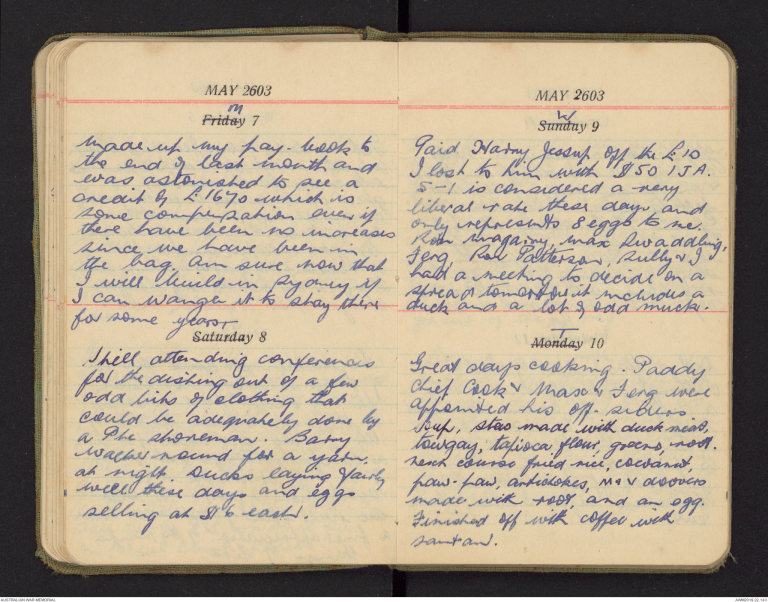 MAY 2603
M
Friday 7
Made up my pay-book to
the end of last month and
was astonished to see a
credit of £1670 which is
some compensation even if
there have been no increases
since we have been in
the bag, am sure now that
I will build in Sydney if
I can wangle it to stay there
for some years.
Saturday 8
Still attending conferences
for the dishing out of a few
odd bits of clothing that
could be adequately done by
a Pte shoreman. Barry
walked round for a yarn
at night. Ducks laying fairly
well these days and eggs
selling at $1 6 each.
MAY 2603
W
Sunday 9
Paid Harry Jessup off the £10
I lost to him with $50 IJA.
5-1 is considered a very
liberal rate these days and
only represents 8 eggs to me.
Ron Magarry, Max Swaddling,
Ferg, Ron Patterson, Sully & I
had a meeting to decide on a
spread tomorrow it includes a
duck and a lot of odd muck.
T
Monday 10
Great days cooking. Paddy
chief Cook & Max & Ferg were
appointed his off-siders
Soup, stew made with duck meat,
towgay, tapioca flour, greens, root.
next course fried rice, cocoanut,
paw-paw, artichokes, M & V doovers
made with root, and an egg.
Finished off with coffee with
santan.
AUSTRALIAN WAR MEMORIAL